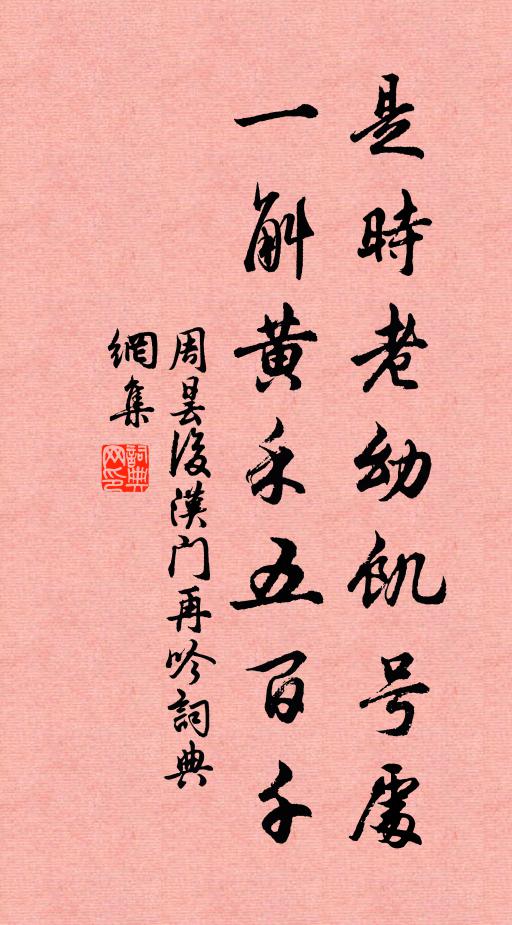 是時老幼飢号處
一斛黄禾五百千
周昙後漢门再吟詞典
網集
詞典
网印